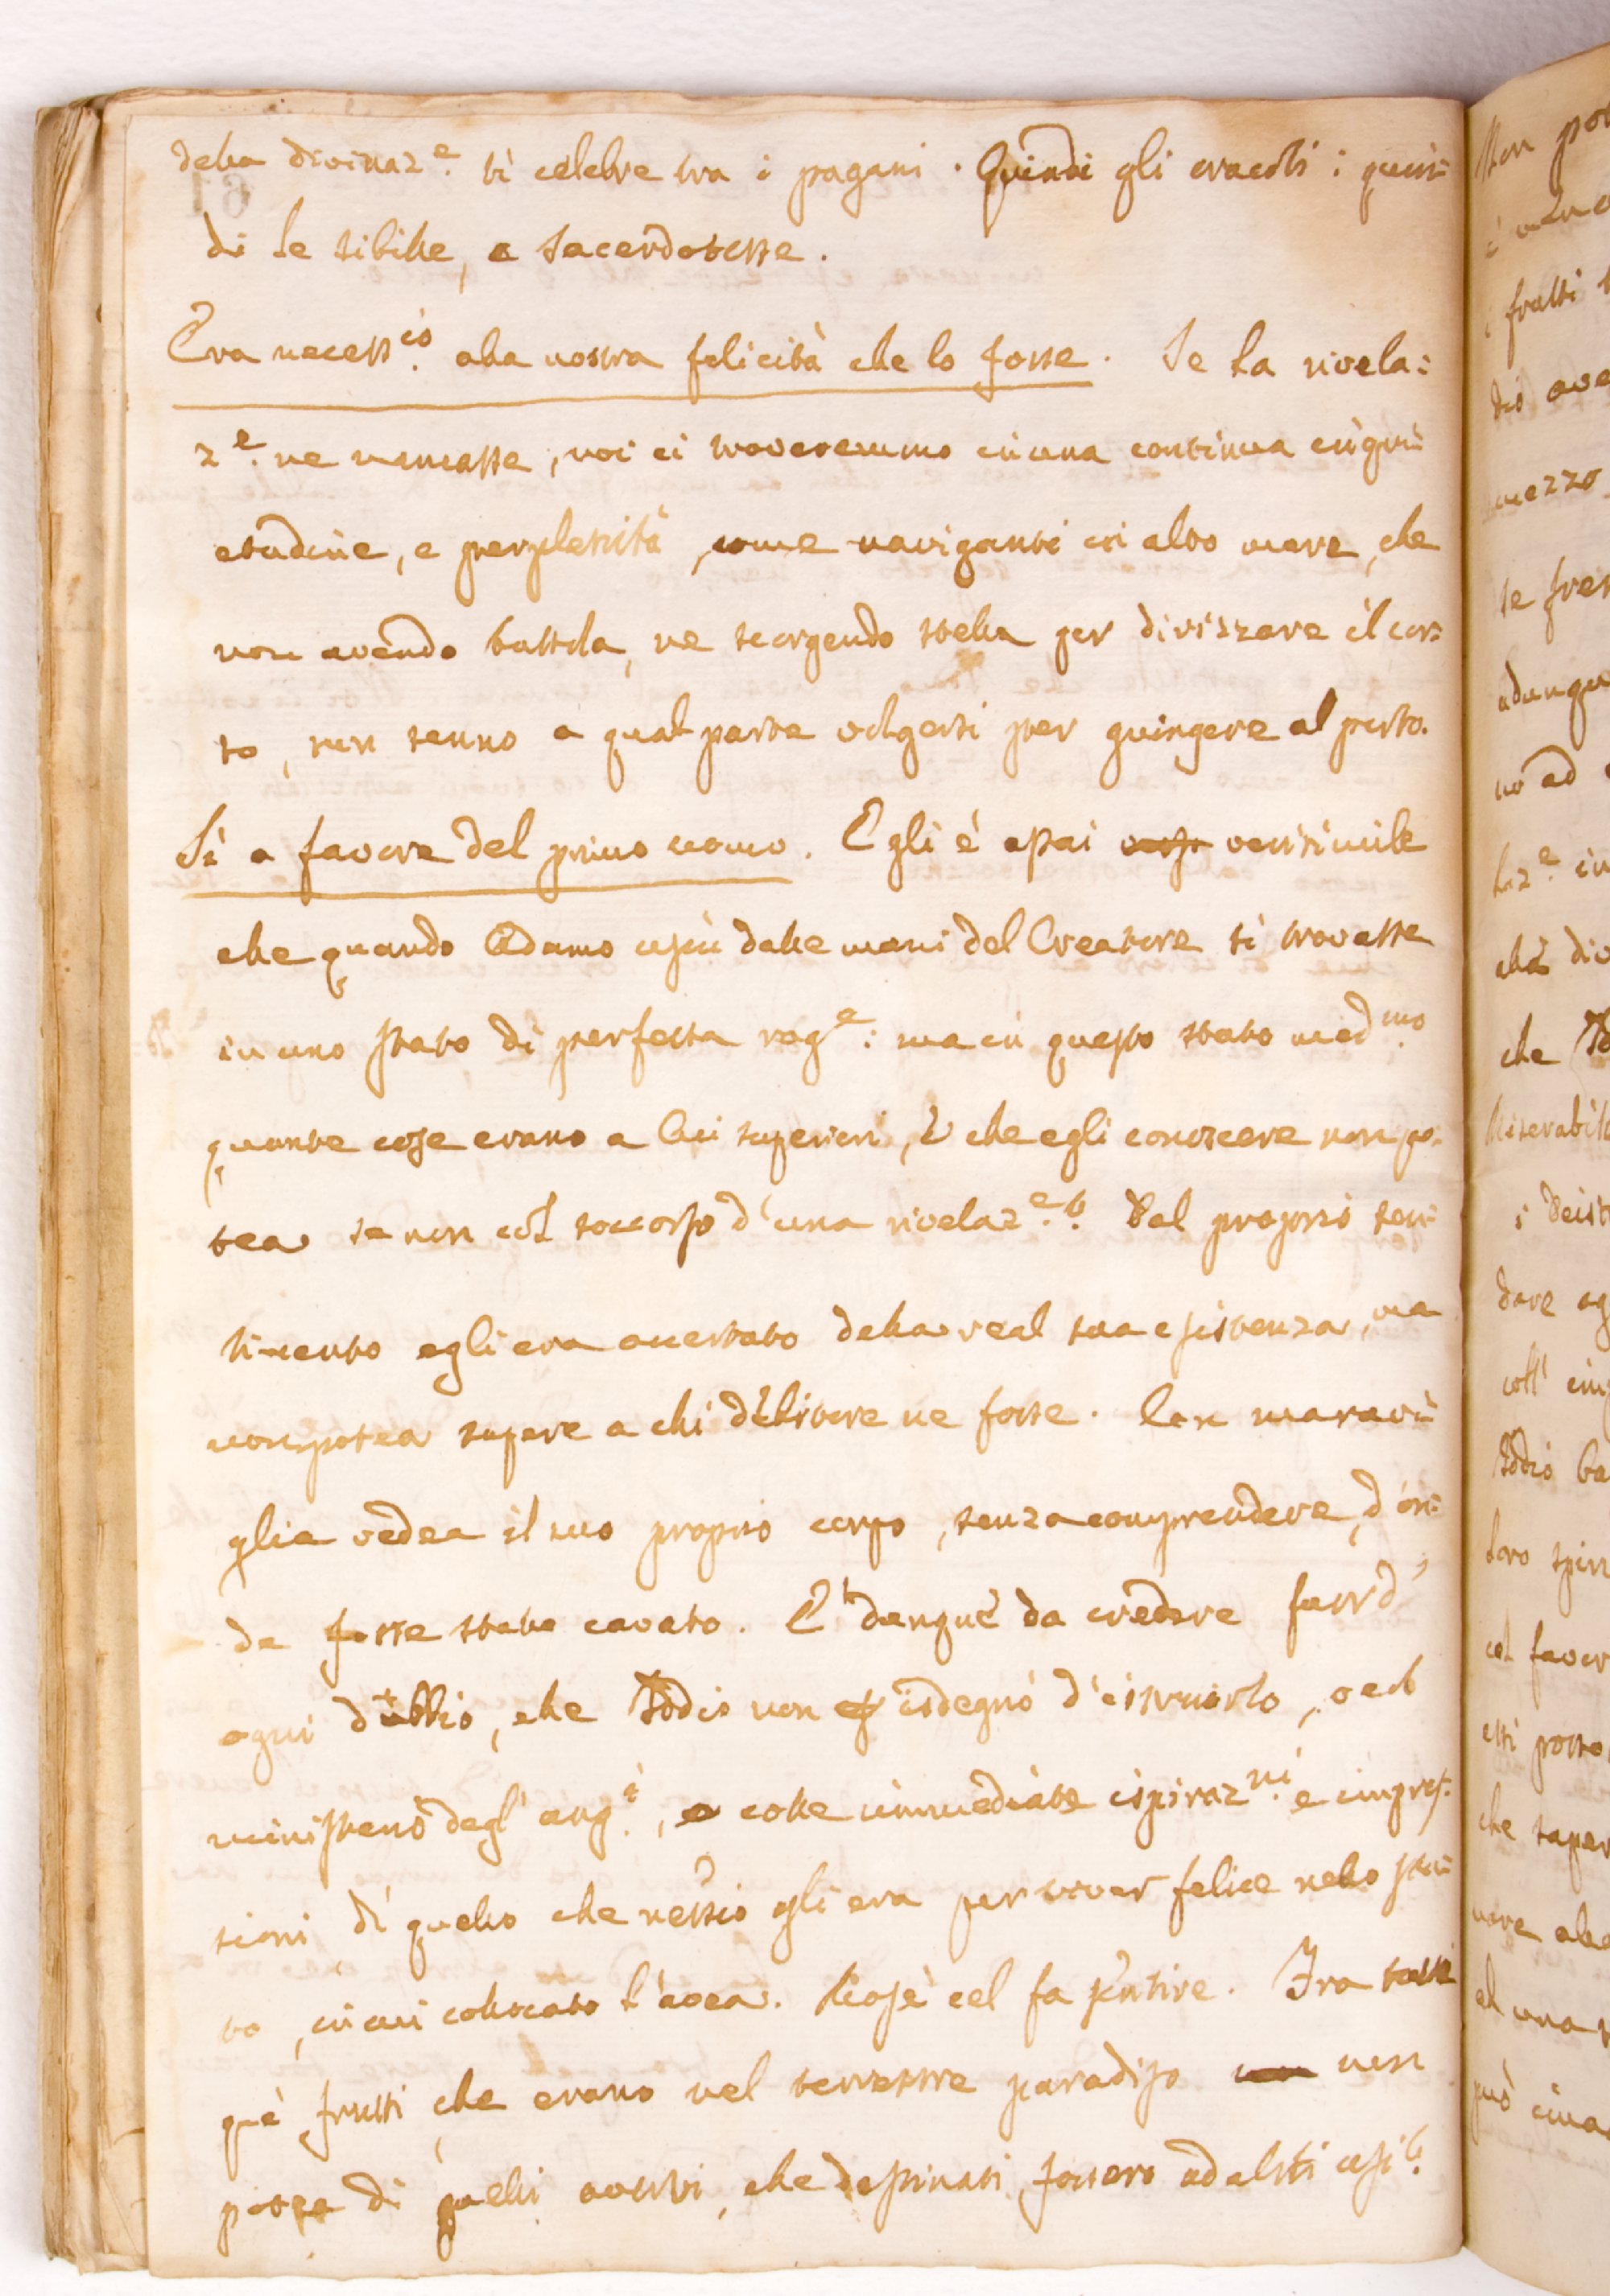 della divinaz.e sì celebre tra i pagani. Quindi gli oracoli: quin=
di le sibille, e sacerdotesse.
Era necess.io alla nostra felicità che lo fosse. Se la rivela=
z.e ne mancasse, noi ci troveremmo in una continua inqui=
etudine, e perplessità, come naviganti in alto mare, che
non avendo bussola, ne scorgendo stella per dirizzare il cor=
so, non sanno a qual parte volgersi per giungere al porto.
Sì a favore del primo uomo. Egli è assai verisimile
che quando Adamo uscì dalle mani del Creatore si trovasse
in uno stato di perfetta rag.e: ma in questo stato med.mo
quante cose erano a lui superiori, e che egli conoscere non po=
tea se non col soccorso d'una rivelaz.e? Dal proprio sen=
timento egli era accertato della real sua esistenza, ma
non potea sapere a chi debitore ne fosse. Con maravi=
glia vedea il suo proprio corpo, senza comprendere, d'on=
de fosse stato cavato. È dunque da credere fuor d'
ogni dubbio, che Iddio non isdegnò d'istruirlo, o col
ministerio degl' ang.i, o colle immediate ispiraz.ni e impres=
sioni di quello che nessio gli era per viver felice nello sta=
to, in cui collocato l'avea. Mosè cel fa sentire. Fra tutti
que' frutti che erano nel terrestre paradiso non
potea di quelli nutrirsi, che destinati fossero ad altri usi?